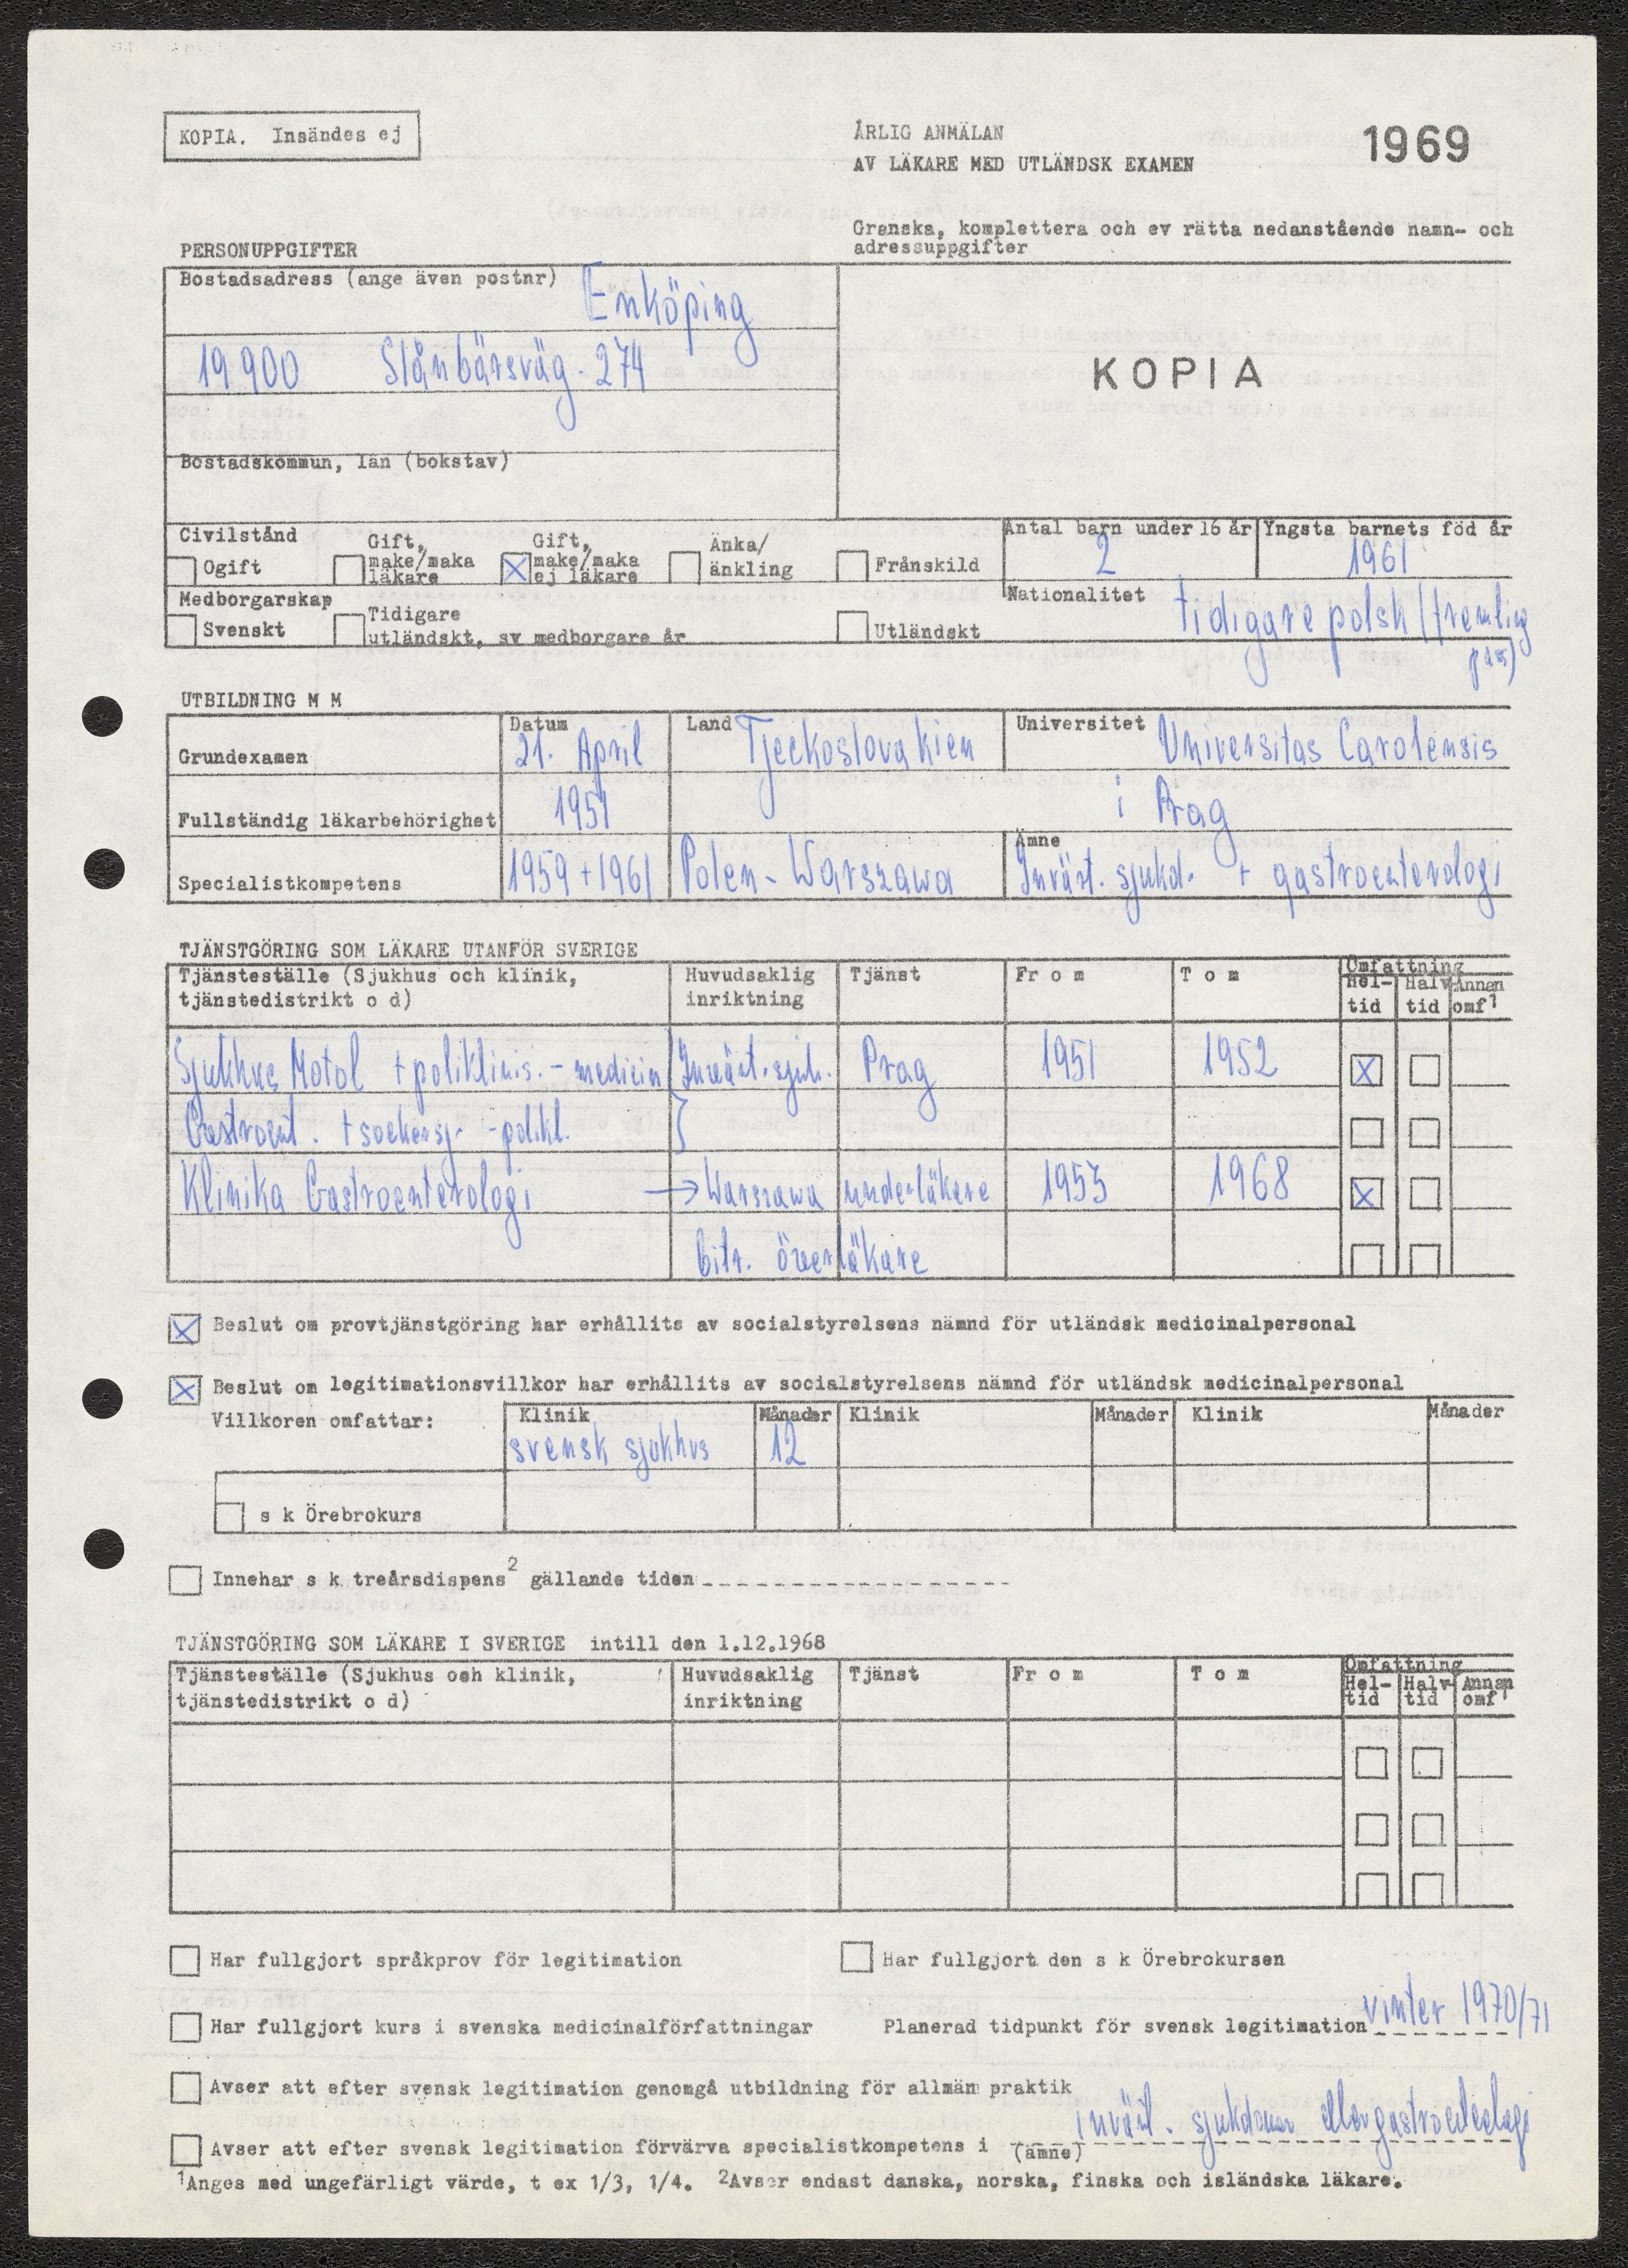 KOPIA. Insändes ej
ÅRLIG ANMÄLAN
AV LÄKARE MED UTLÄNDSK EXAMEN
1969
Granska, komplettera och ev rätta nedanstående namn- och
adressuppgifter
PERSONUPPGIFTER
Bostadsadress (ange även postnr)
Enköping
19 900 Slånbärsväg. 274
KOPIA
Bostadskommun, län (bokstav)
Civilstånd
Ogift
Gift,
make/maka
läkare
Gift,
make/maka
ej läkare
Änka/
änkling
Frånskild
Antal barn under 16 år
2
Yngsta barnets föd år
1961
Medborgarskap
Svenskt
Tidigare
utländskt, sv medborgare år
Utländskt
Nationalitet
tidigare polsk (fremling
pas)
UTBILDNING M M
Grundexamen
Datum
21. April
Land
Tjeckoslovakien
Universitet
Universitas Carolensis
Fullständig läkarbehörighet
1951
i Prag
Specialistkompetens
1959 + 1961
Polen - Warszawa
Ämne
Invärt. sjukd. + gastroenterologi
TJÄNSTGÖRING SOM LÄKARE UTANFÖR SVERIGE
Tjänsteställe (Sjukhus och klinik,
tjänstedistrikt o d)
Huvudsaklig
inriktning
Tjänst
Fr o m
T o m
Omfattning
Hel-
tid
Halv-
tid
Annan
omf1
Sjukhus Motol + poliklinis. - medicin Invärt. sjuk. Prag 1951 1952
Gastroent. + sockersj- - polikl.
Klinika Gastroenterologi → Warszawa underläkare 1953 1968
bitr. överläkare
Beslut om provtjänstgöring har erhållits av socialstyrelsens nämnd för utländsk medicinalpersonal
Beslut om legitimationsvillkor har erhållits av socialstyrelsens nämnd för utländsk medicinalpersonal
Villkoren omfattar:
Klinik Månader Klinik Månader Klinik Månader
svensk sjukhus 12
s k Örebrokurs
Innehar s k treårsdispens2 gällande tiden
TJÄNSTGÖRING SOM LÄKARE I SVERIGE intill den 1.12.1968
Tjänsteställe (Sjukhus och klinik,
tjänstedistrikt o d)
Huvudsaklig
inriktning
Tjänst
Fr o m
T o m
Omfattning
Hel-
tid
Halv-
tid
Annan
omf1
Har fullgjort språkprov för legitimation
Har fullgjort den s k Örebrokursen
Har fullgjort kurs i svenska medicinalförfattningar
Planerad tidpunkt för svensk legitimation vinter 1970/71
Avser att efter svensk legitimation genomgå utbildning för allmän praktik
Avser att efter svensk legitimation förvärva specialistkompetens i invärt. sjukdomar eller gastroenteologi
(ämne)
1Anges med ungefärligt värde, t ex 1/3, 1/4. 2Avser endast danska, norska, finska och isländska läkare.